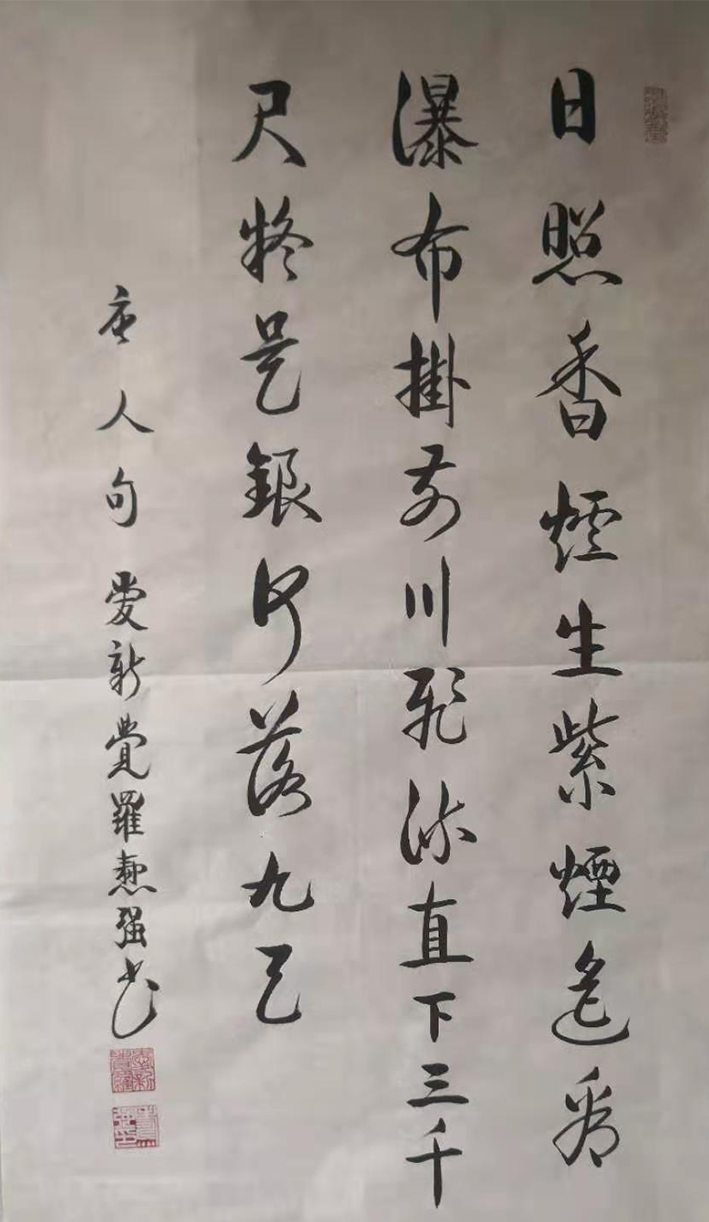 日照香爐生紫煙遙看
瀑布掛前川飛流直下三千
尺疑是銀河落九天
唐人句 愛新覺羅強書